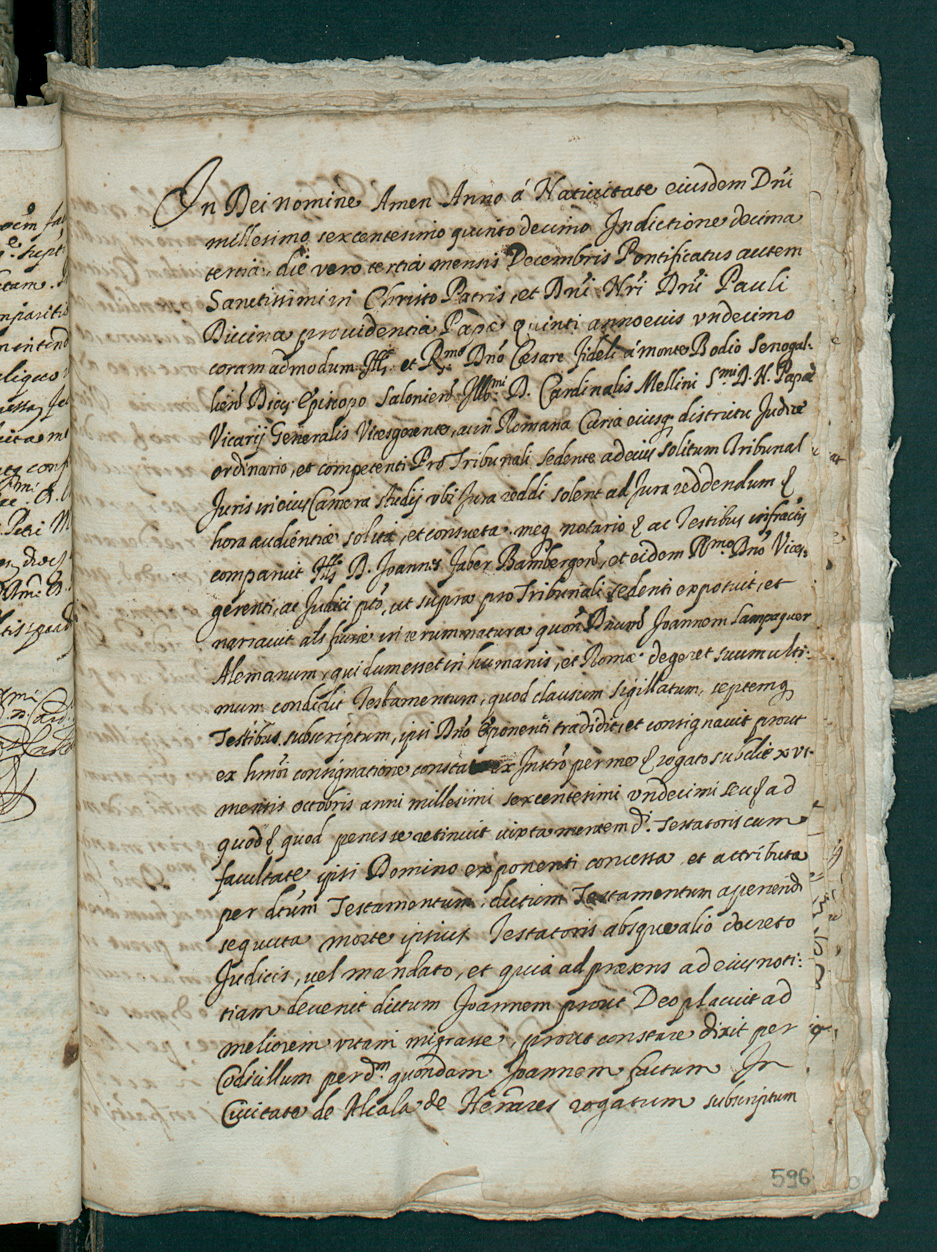 In Dei nomine Amen Anno á Nativitate eiusdem Dnĩ
millesimo sexcentesimo quinto decimo Indictione decima
tertia, die vero tertia mensis Decembris Pontificatus autem
Sanctissimi in Christo Patris, et Dnĩ Nrĩ Dnĩ Pauli
Divina providencia Papæ quinti anno eius vndecimo
coram admodum Ill: et Rmo Dnõ Cesare fideli á monte Bodio Senogal-
lien Dioc Episcopo Salonien Illmi D. Cardinalis Mellini Smi D. N. Papæ
Vicarij Generalis Vicesgerente, ac in Romana Curia eiusq districtu Judice
ordinario, et competenti Pro Tribunali sedente ad eius solitum Tribunal
Juris in eius Camera studij vbi Jura reddi solent ad Jura reddendum
hora audienciæ solita, et consueta, meq notario ac Testibus infractis
comparuit D. Joannes faber Bambergen, et eidem Rmo Dnõ Vices-
gerenti, ac Judici pto, ut supra pro Tribunali sedenti exposuit, et
narravit als in rerum natura quon Joannem Lampaguer
Alemanum, qui dum esset in humanis, et Romæ degeret suum ulti-
mum condidit Testamentum, quod clausum sigillatum, septemq
Testibus subscriptum, ipsi Dnõ Exponenti tradidit, et consignavit prout
ex hmõi consignacione constat ex Instrõ per me rogato sub die xvi
mensis octobris anni millesimi sexcentesimi vndecimi ad
quod quod penes se retinuit iuxta mentem di. Testatoris cum
facultate ipsi Domino exponenti concessa et attributa
per dtum Testamentum, dictum Testamentum aperiendi
sequuta morte ipsius Testatoris absque alio decreto
Judicis, vel mandato, et quia ad præsens ad eius noti-
tiam devenit dictum Joannem prout Deo placuit ad
meliorem vitam migrasse, prout constare dixit per
Codicillum per dm quondam Joannem factum In
Civitate de Alcala de Henares rogatum subscriptum
596